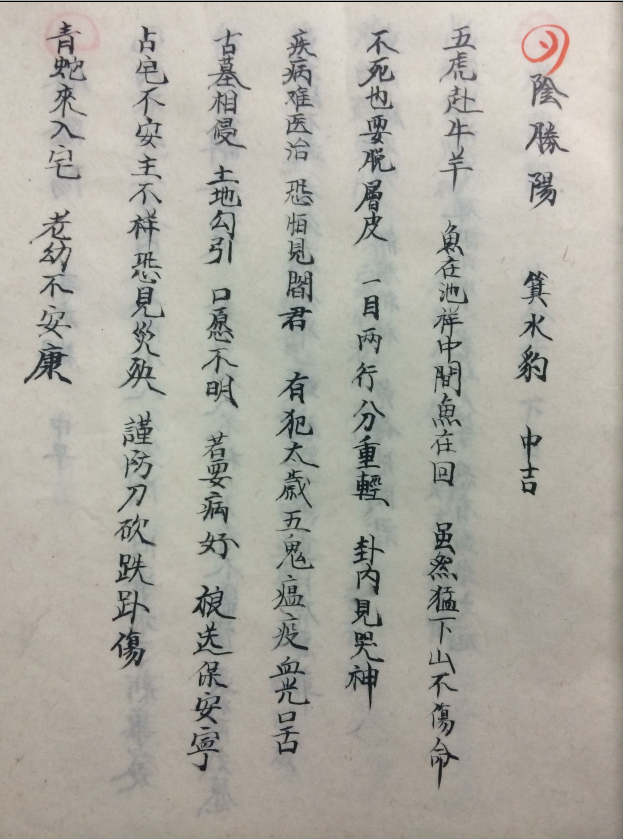 陰勝陽 箕水豹 中吉
五虎赴牛羊 魚在池祥中間魚在回 虽然猛下山不傷命
不死也要脱層皮 一目两行分重輕 卦内見哭神
疾病难医治 恐怕見閻君 有犯太歲五鬼瘟疫血光口舌
古墓相侵 土地勾引 口愿不明 若要病好 送保安寧
占宅不安主不祥恐見災殃 謹防刀砍跌趴傷
青蛇來入宅 老幼不安康